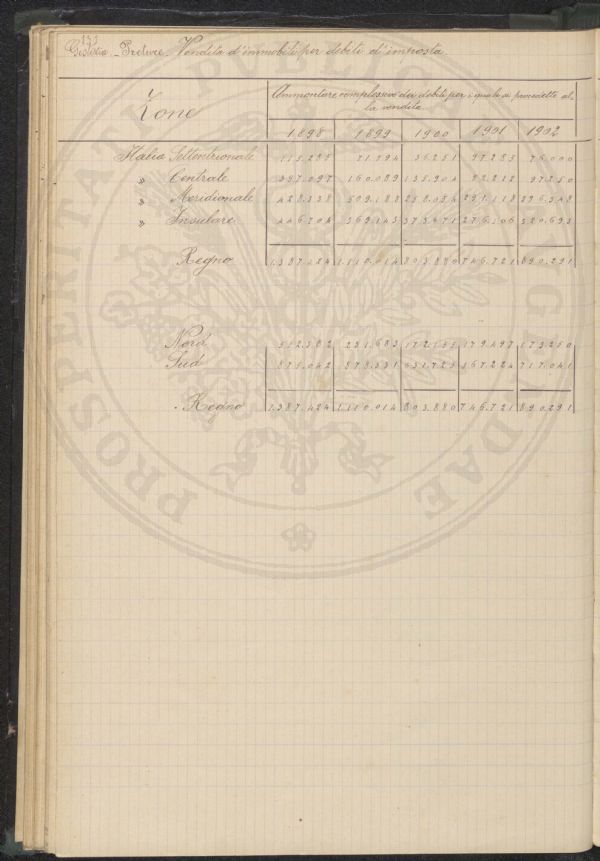 153
Giustizia - Preture. Vendita d'immobili per debiti d'imposta
Zone
Ammontare complessivo dei debiti per i quali si procedette al-
la vendita
1898 1899 1900 1901 1902
Italia Settentrionale 115.285 71.594 36.251 97.285 76.000
" Centrale 397.097 160.089 135.904 82.212 97.250
" Meridionale 428.338 509.188 258.054 291.118 196.348
" Insulare 446.704 369.143 373.671 276.106 520.693
Regno 1.387.424 1.110.014 803.880 746.721 890.291
Nord 512.382 231.683 172.155 179.497 173.250
Sud 875.042 878.331 631.725 567.224 717.041
Regno 1.387.424 1.110.014 803.880 746.721 890.291
PROSPERITATI PUBLICAE AUGENDAE